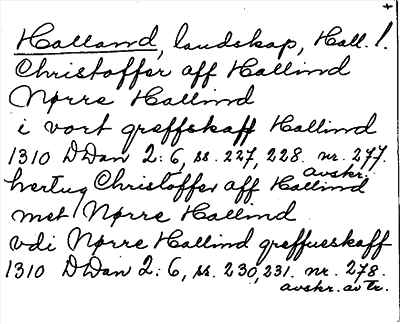 +
Halland, landskap, Hall. l.
Christoffer aff Hallind
Nørre Hallind
i vort greffskaff Hallind
1310 DDan 2:6, ss. 227, 228. nr. 277.
avskr.
hertug Christoffer aff Hallind
met Nørre Hallind
vdi Nørre Hallind greffueskaff
1310 DDan 2:6, ss. 230, 231. nr. 278.
avskr. av tr.